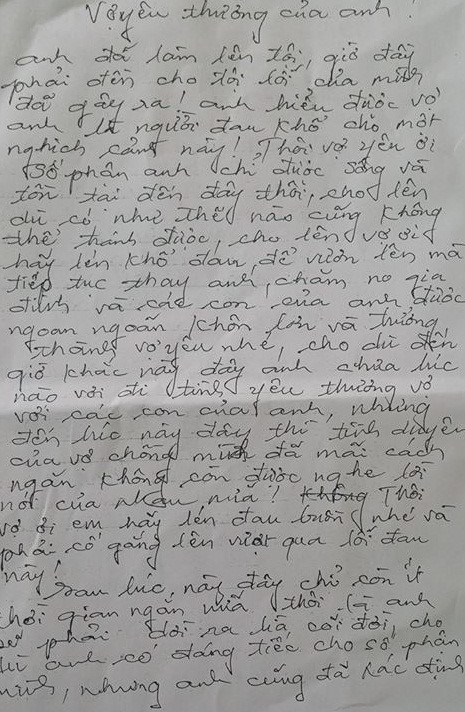 Vợ yêu thương của anh!
anh đã làm lên tội, giờ đây
phải đền cho tội lỗi của mình
đã gây ra! anh hiểu được vợ
anh là người đau khổ cho một
nghịch cảnh này! Thôi vợ yêu ơi
số phận anh chỉ được sống và
tồn tài đến đây thôi, cho lên
dù có như thế nào cũng không
thể tránh được, cho lên vợ ơi
hãy lén khổ đau, để vươn lên mà
tiếp tục thay anh, chăm no gia
đình và các con của anh được
ngoan ngoãn khôn lớn và trưởng
thành vợ yêu nhé, cho dù đến
giờ khắc này đây anh chưa lúc
nào vơi đi tình yêu thương vợ
với các con của anh, nhưng
đến lúc này đây thì tình duyên
của vợ chồng mình đã mãi cach
ngăn không còn được nghe lời
nói của nhau nữa! Không Thôi
vợ ơi em hãy lén đau buồn nhé và
phải cố gắng lên vượt qua lỗi đau
này!
sau lúc này đây chỉ còn ít
thời gian ngắn nữa thôi là anh
sẽ phải dời ra cõi đời, cho
dù anh có đáng tiếc cho số phận
mình, nhưng anh cũng đã xác định